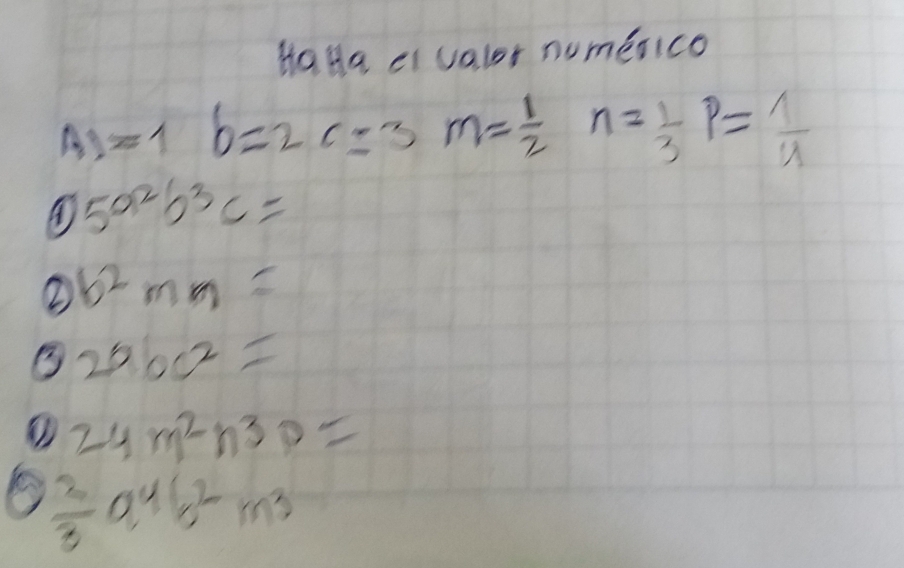 Halla el valor numérico
A)=1 b=2 c=3 m=1/2 n=1/3 P=1/4
① 5a²b³c=
② b²mn=
③ 2abc²=
④ 24m²n³p=
⑤ 2/3 a⁴b²m³